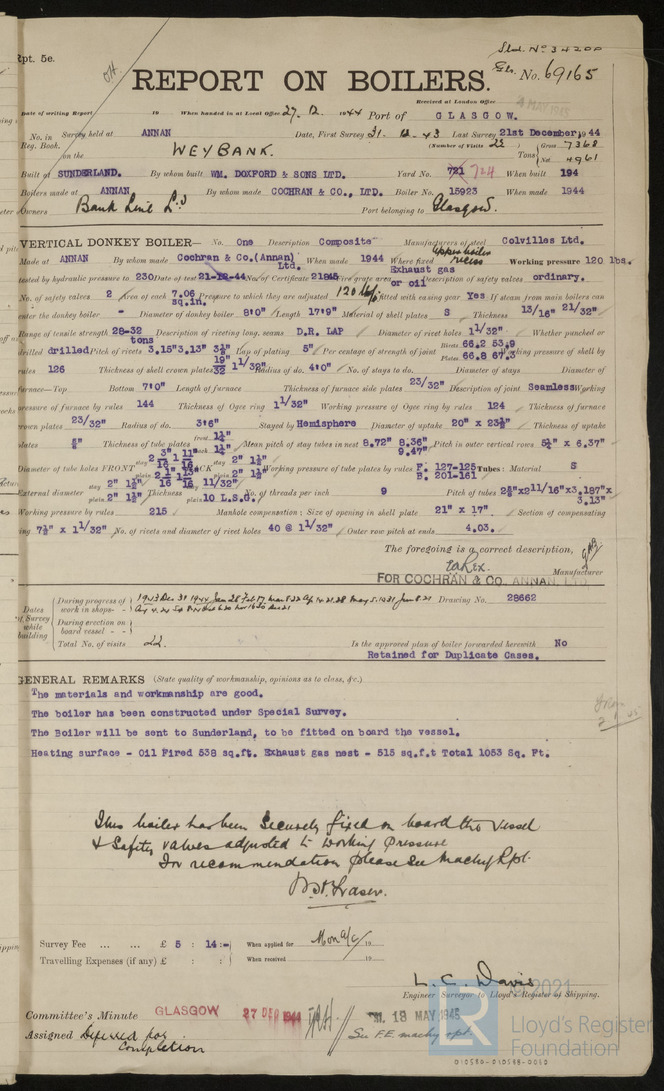 Rpt. 5e.
Sld. No 34200
REPORT ON BOILERS.
Gls. No. 69165
Received at London Office
4 MAY 1945
Date of writing Report 19 When handed in at Local Office 27. 12. 1944 Port of GLASGOW.
No. in Survey held at ANNAN Date, First Survey 31. 12. 43 Last Survey 21st December, 1944
Reg. Book. (Number of Visits 22 Gross 7368
on the WEYBANK. Tons
Net 4961
Built at SUNDERLAND. By whom built WM. DOXFORD & SONS LTD. Yard No. 721 724 When built 194
Boilers made at ANNAN By whom made COCHRAN & CO., LTD. Boiler No. 15923 When made 1944
Owners Bank Line Ld Port belonging to Glasgow.
VERTICAL DONKEY BOILER— No. One Description Composite Manufacturers of steel Colvilles Ltd.
Made at ANNAN By whom made Cochran & Co.(Annan) Ltd. When made 1944 Where fixed Upper boiler recess Working pressure 120 lbs.
tested by hydraulic pressure to 230 Date of test 21-12-44 No. of Certificate 21845 Fire grate area Exhaust gas or oil Description of safety valves ordinary.
No. of safety valves 2 Area of each 7.06 sq.in. Pressure to which they are adjusted 120 lbs fitted with easing gear Yes If steam from main boilers can
enter the donkey boiler - Diameter of donkey boiler 8'0" Length 17'9" Material of shell plates S Thickness 13/16" 21/32"
Range of tensile strength 28-32 tons Description of riveting long. seams D.R. LAP Diameter of rivet holes 1 1/32" Whether punched or
drilled drilled Pitch of rivets 3.15" 3.13" 3½" Lap of plating 5" Per centage of strength of joint Rivets 66.2 53.9 Plates 66.8 67.3 Working pressure of shell by
rules 126 Thickness of shell crown plates 19"/32 1 1/32" Radius of do. 4'0" No. of stays to do. Diameter of stays Diameter of
furnace—Top Bottom 7'0" Length of furnace Thickness of furnace side plates 23/32" Description of joint Seamless Working
pressure of furnace by rules 144 Thickness of Ogee ring 1 1/32" Working pressure of Ogee ring by rules 124 Thickness of furnace
crown plates 23/32" Radius of do. 3'6" Stayed by Hemisphere Diameter of uptake 20" x 23½" Thickness of uptake
plates Thickness of tube plates front 1¼" back 1¼" Mean pitch of stay tubes in nest 8.72" 8.36" 9.47" Pitch in outer vertical rows 5¼" x 6.37"
Diameter of tube holes FRONT BACK Working pressure of tube plates by rules F. 127-125 B. 201-161 Tubes: Material S
External diameter stay 2" 1½" plain 2" 1½" Thickness 11/32" plain 10 L.S.G. No. of threads per inch 9 Pitch of tubes 2⅞"x2 11/16"x3.187"x 3.13"
Working pressure by rules 215 Manhole compensation: Size of opening in shell plate 21" x 17". Section of compensating
ring 7½" x 1 1/32" No. of rivets and diameter of rivet holes 40 @ 1 1/32" Outer row pitch at ends 4.03.
The foregoing is a correct description,
Manufacturer
FOR COCHRAN & CO. ANNAN, LTD
Dates of Survey while building
During progress of work in shops - - 1943 Dec 31 1944 Jan 26 Feb 17 Drawing No. 28662
During erection on board vessel - -
Total No. of visits 22. Is the approved plan of boiler forwarded herewith No
Retained for Duplicate Cases.
GENERAL REMARKS (State quality of workmanship, opinions as to class, &c.)
The materials and workmanship are good.
The boiler has been constructed under Special Survey.
The Boiler will be sent to Sunderland, to be fitted on board the vessel.
Heating surface - Oil Fired 538 sq.ft. Exhaust gas nest - 515 sq.f.t Total 1053 Sq. Ft.
This boiler has been securely fixed on board the vessel
& Safety valves adjusted to working pressure
For recommendation please see Machy Rpt.
Fraser.
Survey Fee ... ... £ 5 : 14:- When applied for Mon a/c 19
Travelling Expenses (if any) £ : : When received 19
L. C. Davis
Engineer Surveyor to Lloyd's Register of Shipping.
Committee's Minute GLASGOW 27 DEC 1944 FRI. 18 MAY 1945
Assigned Deferred for completion See F.E. machy rpt.
LR
2021
Lloyd's Register
Foundation
010580-010588-0050